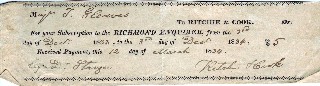 To RITCHIE & COOK, Dr.
For your Subscription to the RICHMOND ENQUIRER, from the 3rd
day of Decr 1833, to the 3rd day of Decr 1834, $5
Received Payment, this 12 day of March 1834.
Ritchie & Cook